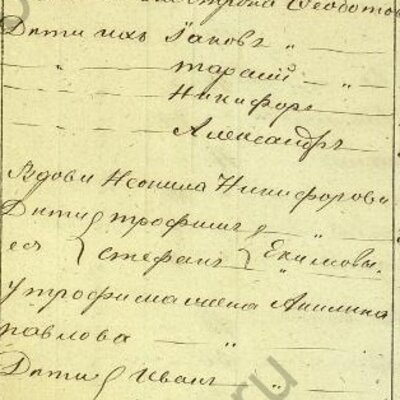 Ѳеодотов
Дѣти ихъ Iаковъ „
„ тарасiй „
Никифоръ
Александръ
Вдова Неонила Никифорова
Дѣти трофимъ „
ея стефанъ Екимовы.
у трофима жена Акилина
павлова „
Дѣти Иванъ „
ru